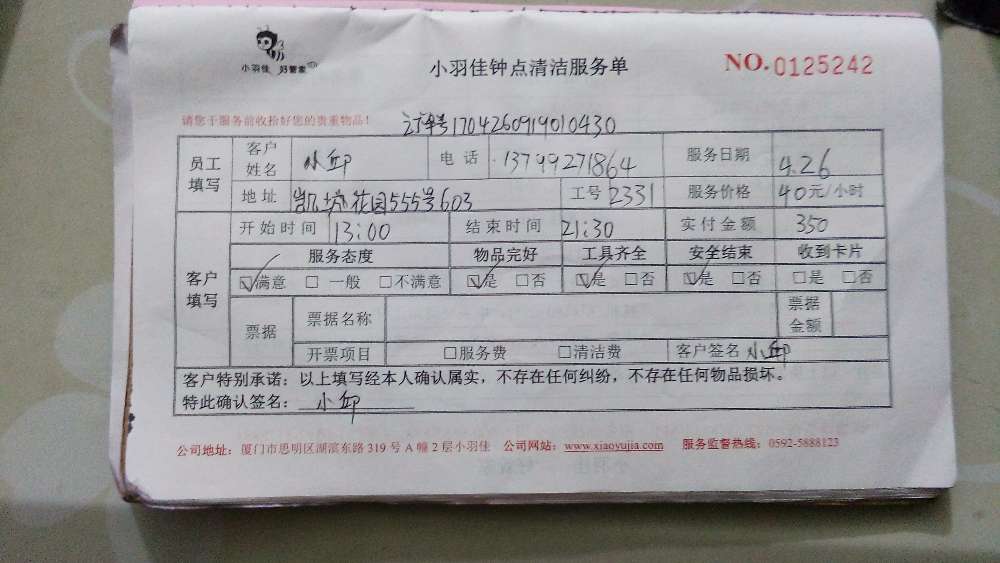 小羽佳 好管家
小羽佳钟点清洁服务单
NO.0125242
请您于服务前收拾好您的贵重物品!
订单号170426091901043​0
员工填写 客户姓名 小邱 电话 13799271864 服务日期 4.26
地址 凯悦花园555号603 工号 2331 服务价格 40元/小时
客户填写 开始时间 13:00 结束时间 21:30 实付金额 350
服务态度 物品完好 工具齐全 安全结束 收到卡片
☑满意 □一般 □不满意 ☑是 □否 ☑是 □否 ☑是 □否 □是 □否
票据 票据名称 票据金额
开票项目 □服务费 □清洁费 客户签名 小邱
客户特别承诺：以上填写经本人确认属实，不存在任何纠纷，不存在任何物品损坏。
特此确认签名：小邱
公司地址：厦门市思明区湖滨东路 319 号 A 幢 2 层小羽佳 公司网站：www.xiaoyujia.com 服务监督热线：0592-5888123